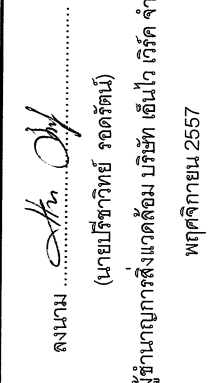 ลงนาม ........................................
(นายปรีชาวิทย์ รอดรัตน์)
ผู้ชำนาญการสิ่งแวดล้อม บริษัท เอ็นไว เวิร์ค จำ
พฤศจิกายน 2557